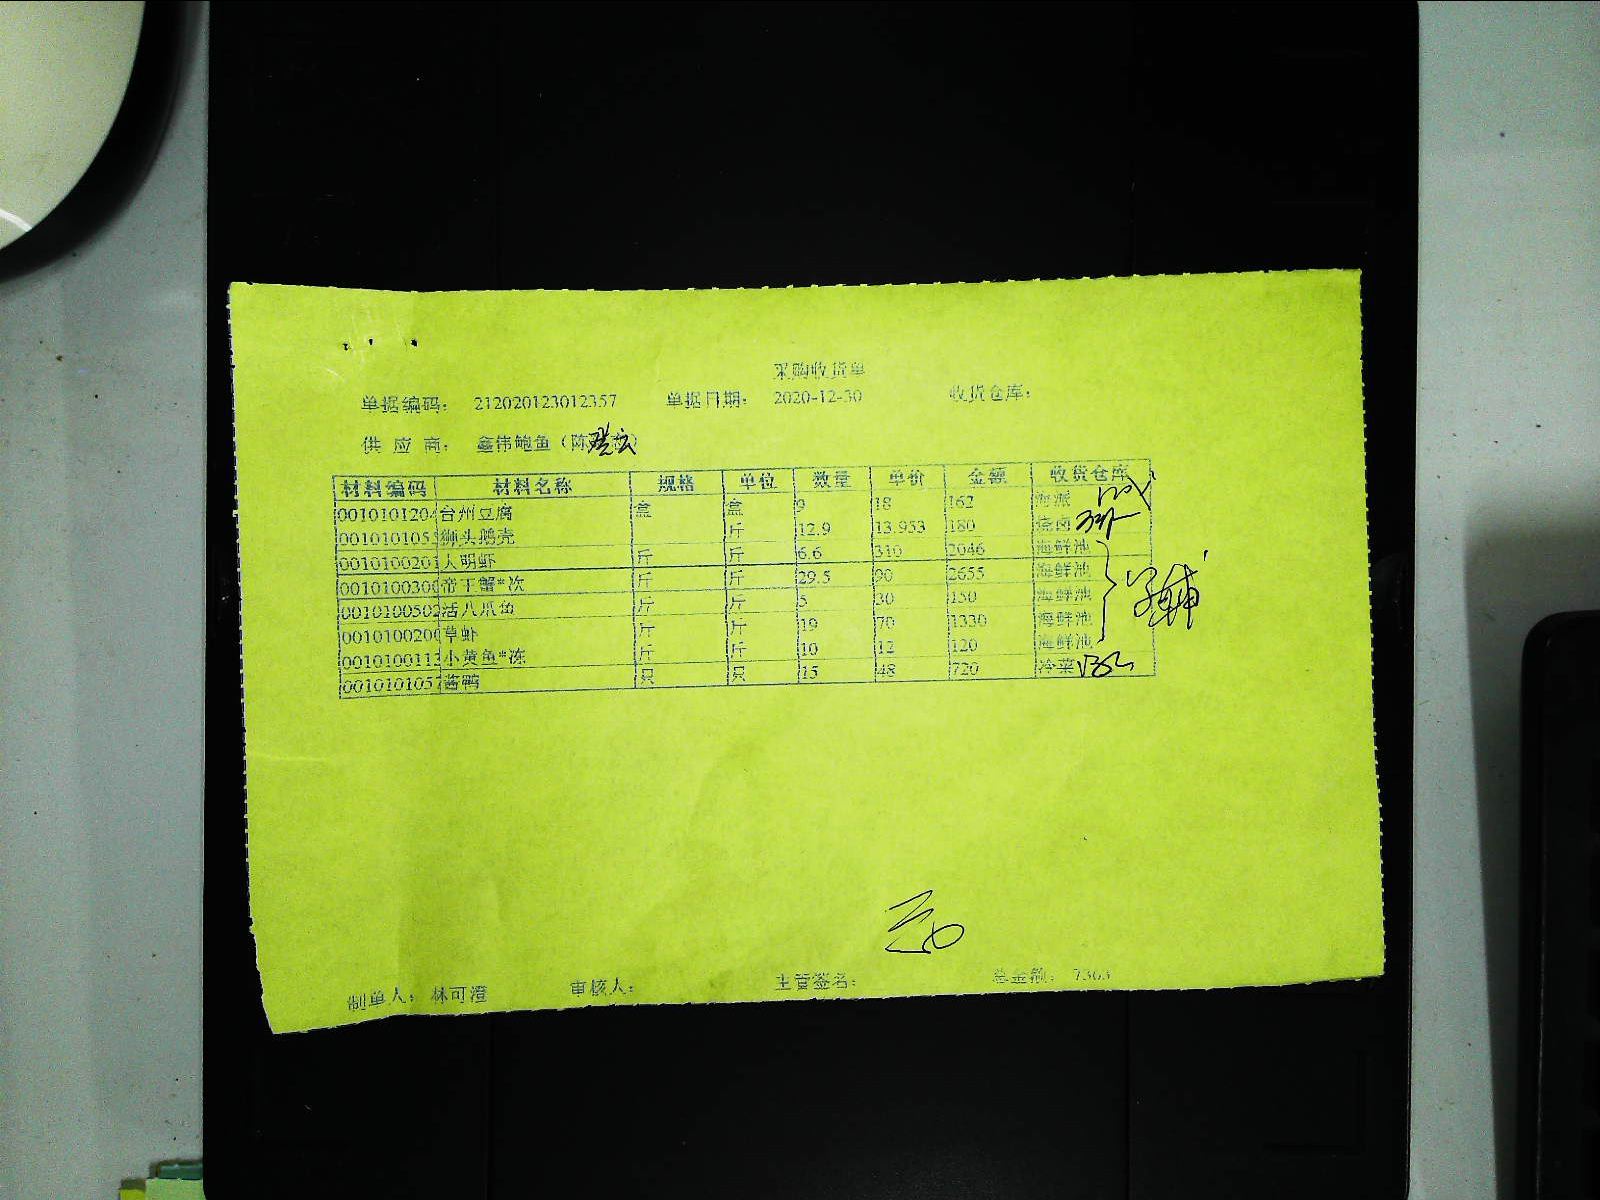 采购收货单
单据编码： 212020123012357 单据日期： 2020-12-30 收货仓库：
供应商： 鑫伟鲍鱼（陈
材料编码 材料名称 规格 单位 数量 单价 金额 收货仓库
0010101204 台州豆腐 盒 盒 9 18 162 海派
001010105 狮头鹅壳 斤 12.9 13.953 180 烧卤
001010020 大明虾 斤 斤 6.6 310 2046 海鲜池
001010030 帝王蟹*次 斤 斤 29.5 90 2655 海鲜池
0010100502 活八爪鱼 斤 斤 5 30 150 海鲜池
001010020 草虾 斤 斤 19 70 1330 海鲜池
001010011 小黄鱼*冻 斤 斤 10 12 120 海鲜池
001010105 酱鸭 只 只 15 48 720 冷菜
制单人： 林可澄 审核人： 主管签名： 总金额： 7363